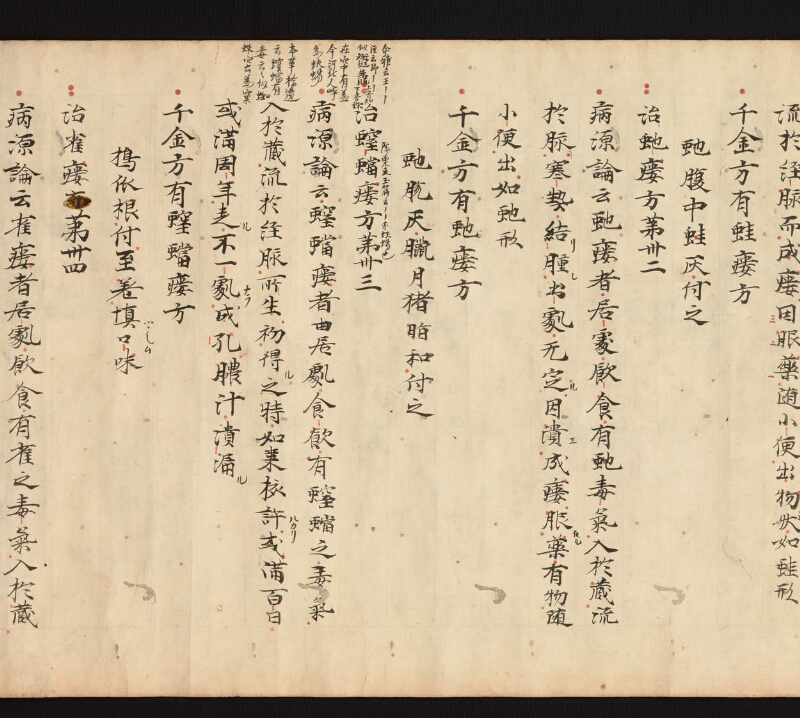 流於経脉而成瘻因服薬随小便出物状如蛙形
千金方有蛙瘻方
虵腹中蛙灰付之
治虵瘻方第卅二
病源論云虵瘻者居處飲食有虵毒氣入於蔵流
於脉寒熱結腫出處无定因潰成瘻服薬有物随
小便出如虵形
千金方有虵瘻方
虵蛻灰臘月猪脂和付之
治螲蟷瘻方第卅三
病源論云螲蟷瘻者由居處食飲有螲蟷之毒氣
入於蔵流於経脉所生初得之時如棗核許或満百日
或満周年走不一處成孔膿汁潰漏
千金方有螲蟷瘻方
搗 根付至着填口味
治雀瘻 第卅四
病源論云雀瘻者居處飲食有雀之毒氣入於蔵